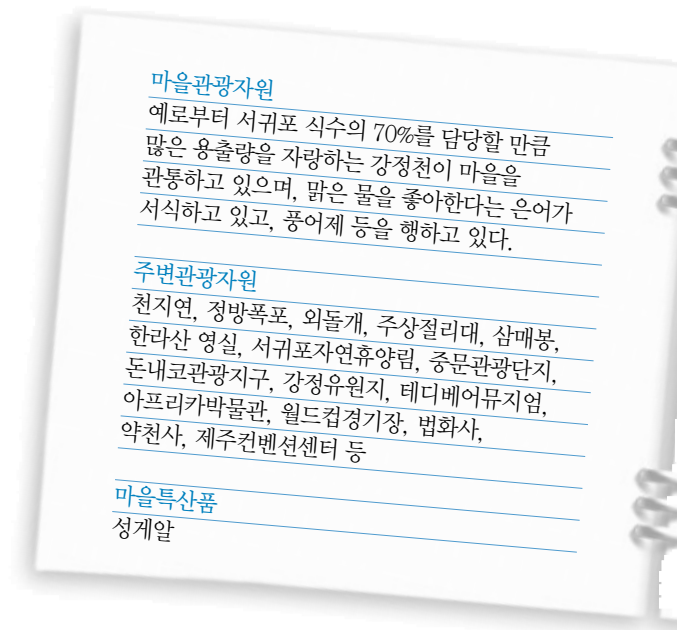 마을관광자원
예로부터 서귀포 식수의 70%를 담당할 만큼
많은 용출량을 자랑하는 강정천이 마을을
관통하고 있으며, 맑은 물을 좋아한다는 은어가
서식하고 있고, 풍어제 등을 행하고 있다.
주변관광자원
천지연, 정방폭포, 외돌개, 주상절리대, 삼매봉,
한라산 영실, 서귀포자연휴양림, 중문관광단지,
돈내코관광지구, 강정유원지, 테디베어뮤지엄,
아프리카박물관, 월드컵경기장, 법화사,
약천사, 제주컨벤션센터 등
마을특산품
성게알